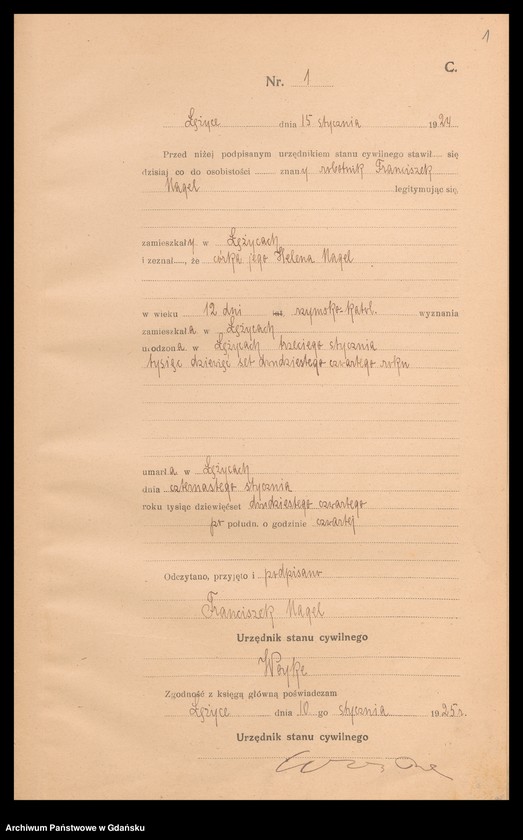 1
C.
Nr. 1
Łężyce dnia 15 stycznia 1924
Przed niżej podpisanym urzędnikiem stanu cywilnego stawił się
dzisiaj co do osobistości znany robotnik Franciszek
Nagel legitymując się
zamieszkały w Łężycach
i zeznał, że córka jego Helena Nagel
w wieku 12 dni lat rzymsko-katol. wyznania
zamieszkała w Łężycach
urodzona w Łężycach trzeciego stycznia
tysiąc dziewięć set dwudziestego czwartego roku
umarła w Łężycach
dnia czternastego stycznia
roku tysiąc dziewięćset dwudziestego czwartego
po połudn. o godzinie czwartej
Odczytano, przyjęto i podpisano
Franciszek Nagel
Urzędnik stanu cywilnego
Woyke
Zgodność z księgą główną poświadczam
Łężyce dnia 10 go stycznia 1925 r.
Urzędnik stanu cywilnego
Archiwum Państwowe w Gdańsku